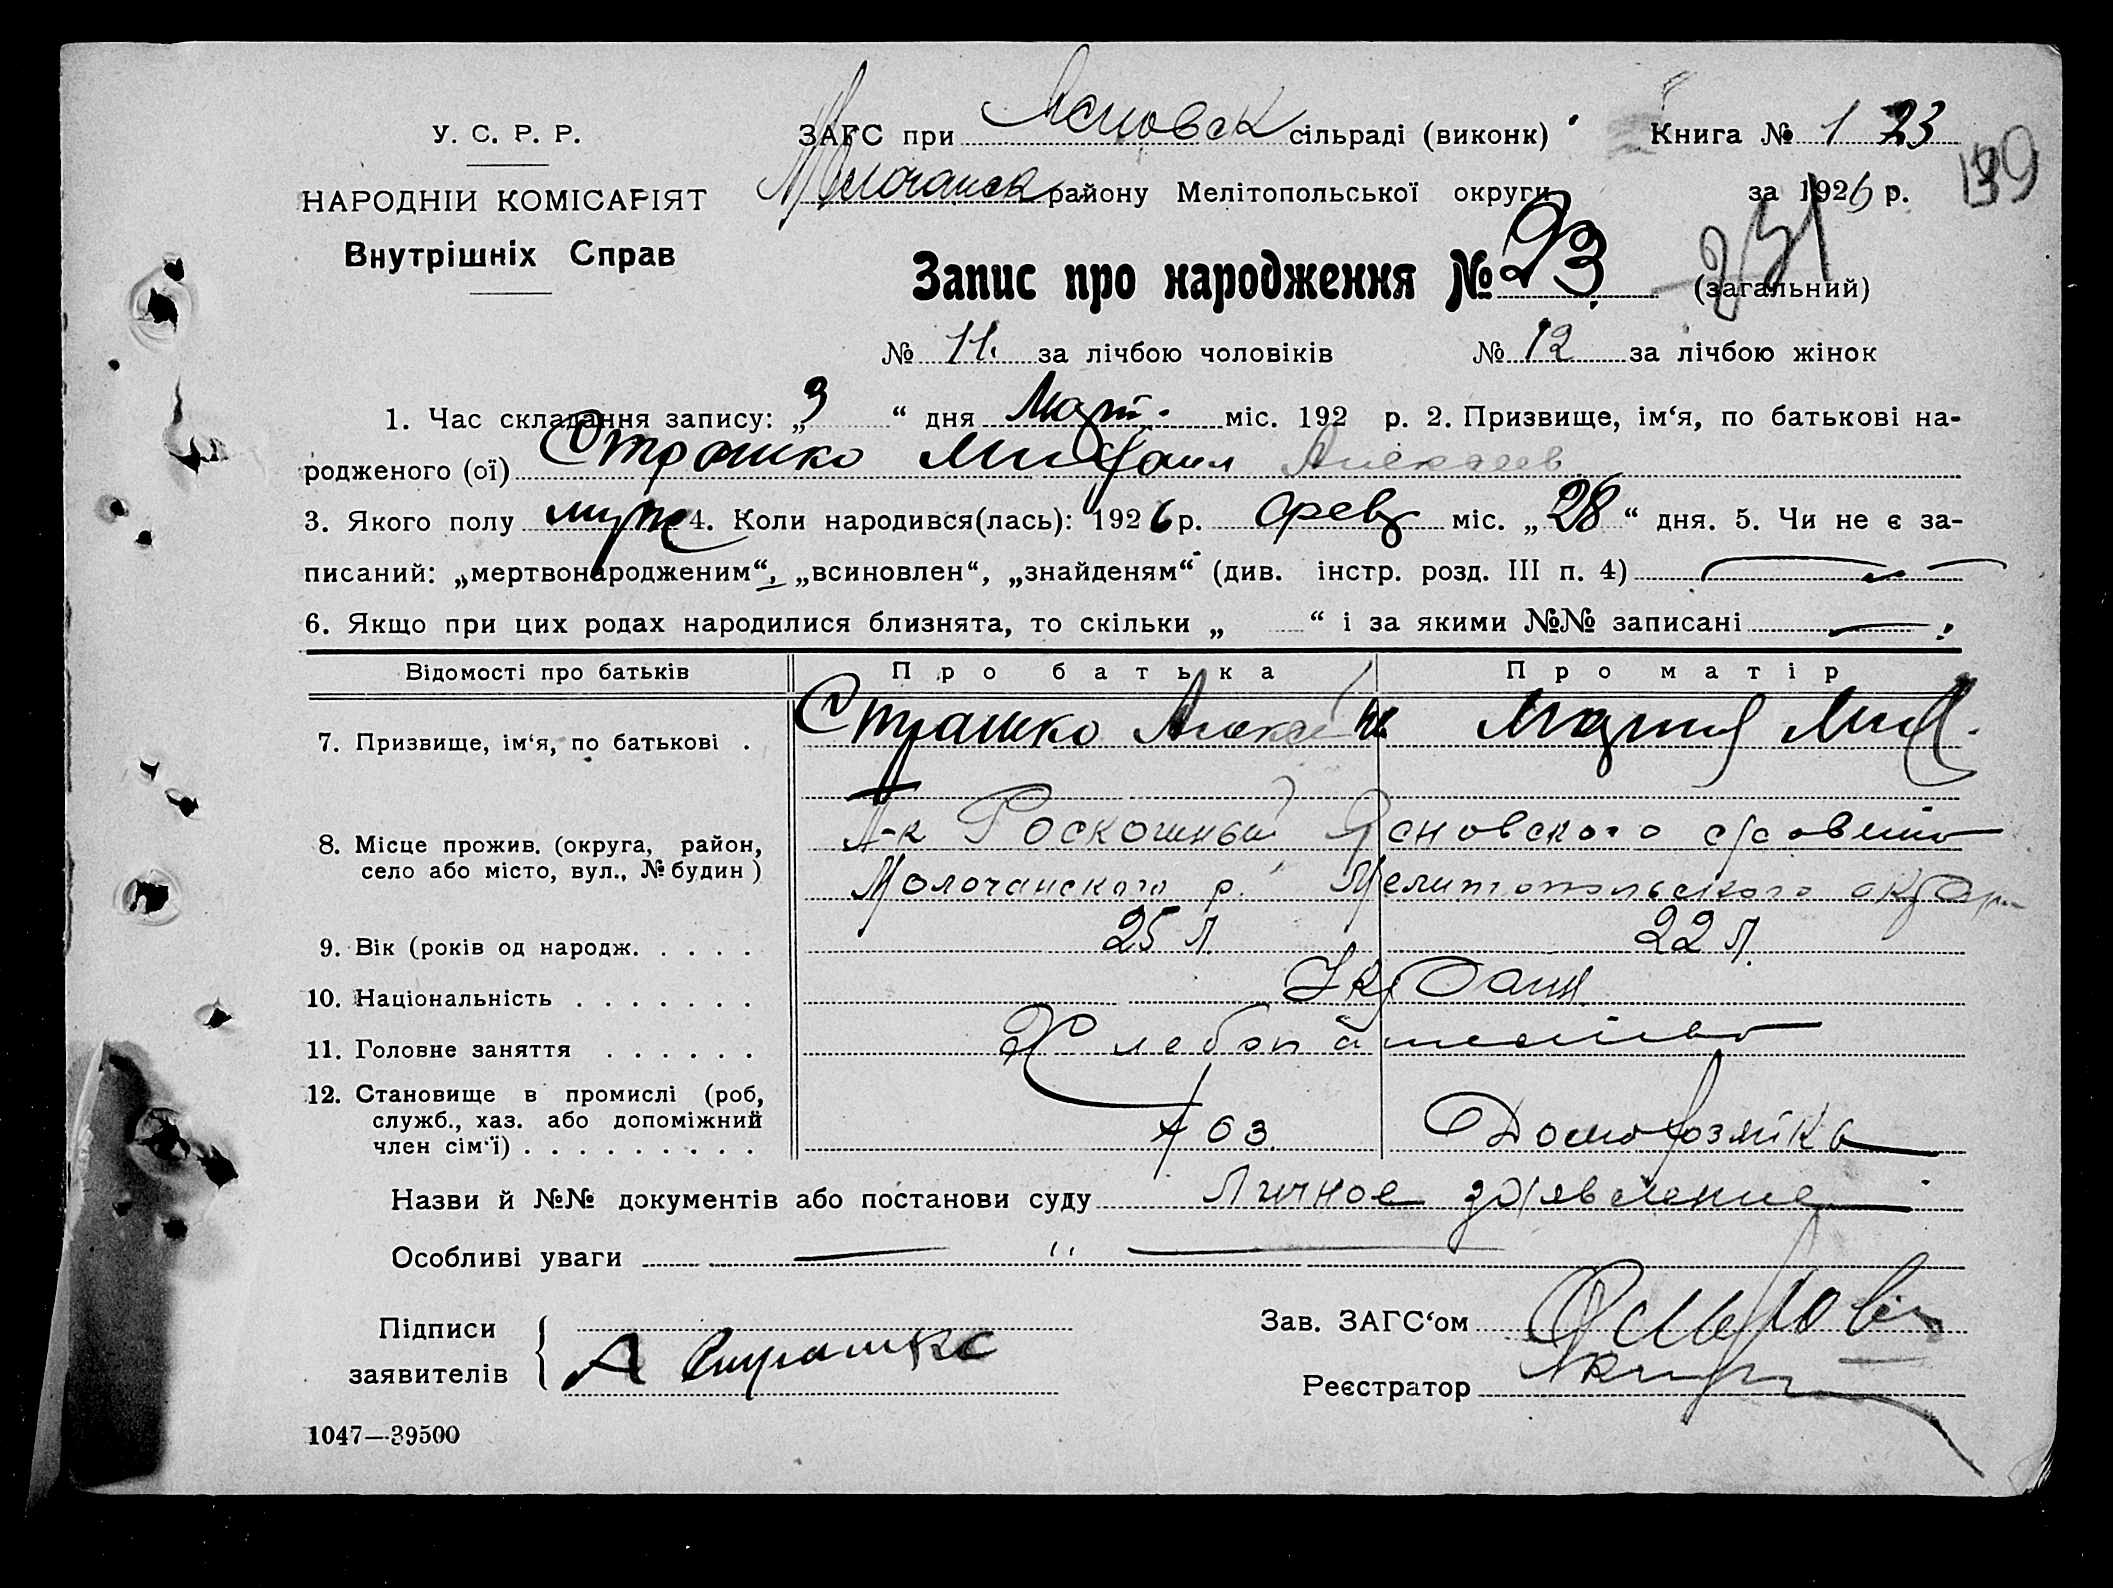 У. С. Р. Р.
НАРОДНІЙ КОМІСАРІЯТ
Внутрішніх Справ
ЗАГС при Ясновск сільраді (виконк) Книга № 1 23
139
Молочанск району Мелітопольської округи за 1926 р.
Запис про народження № 23 (загальний)
231
№ 11 за лічбою чоловіків № 12 за лічбою жінок
1. Час складання запису: „3“ дня Март. міс. 192 р. 2. Призвище, ім‘я, по батькові на-
родженого (ої) Страшко Михаил Алексеев
3. Якого полу муж 4. Коли народився(лась): 1926 р. февр міс. „28“ дня. 5. Чи не є за-
писаний: „мертвонародженим“, „всиновлен“, „знайденям“ (див. інстр. розд. III п. 4)
6. Якщо при цих родах народилися близнята, то скільки „ “ і за якими №№ записані
Відомості про батьків Про батька Про матір
7. Призвище, ім‘я, по батькові . Страшко Алексей Мария Мих.
8. Місце прожив. (округа, район, Роскошный Ясновского
село або місто, вул., № будин) Молочанского р. Мелитопольского
9. Вік (років од народж. . . . . 25 л. 22 л.
10. Національність . . . . . . . Украин
11. Головне заняття . . . . . . Хлебопашество
12. Становище в промислі (роб,
служб., хаз. або допоміжний
член сім‘ї) . . . . . . . . . . хоз. Домохозяйка
Назви й №№ документів або постанови суду Личное заявление
Особливі уваги — “ —
Підписи
заявителів А Страшко
Зав. ЗАГС‘ом
Реєстратор
1047—39500